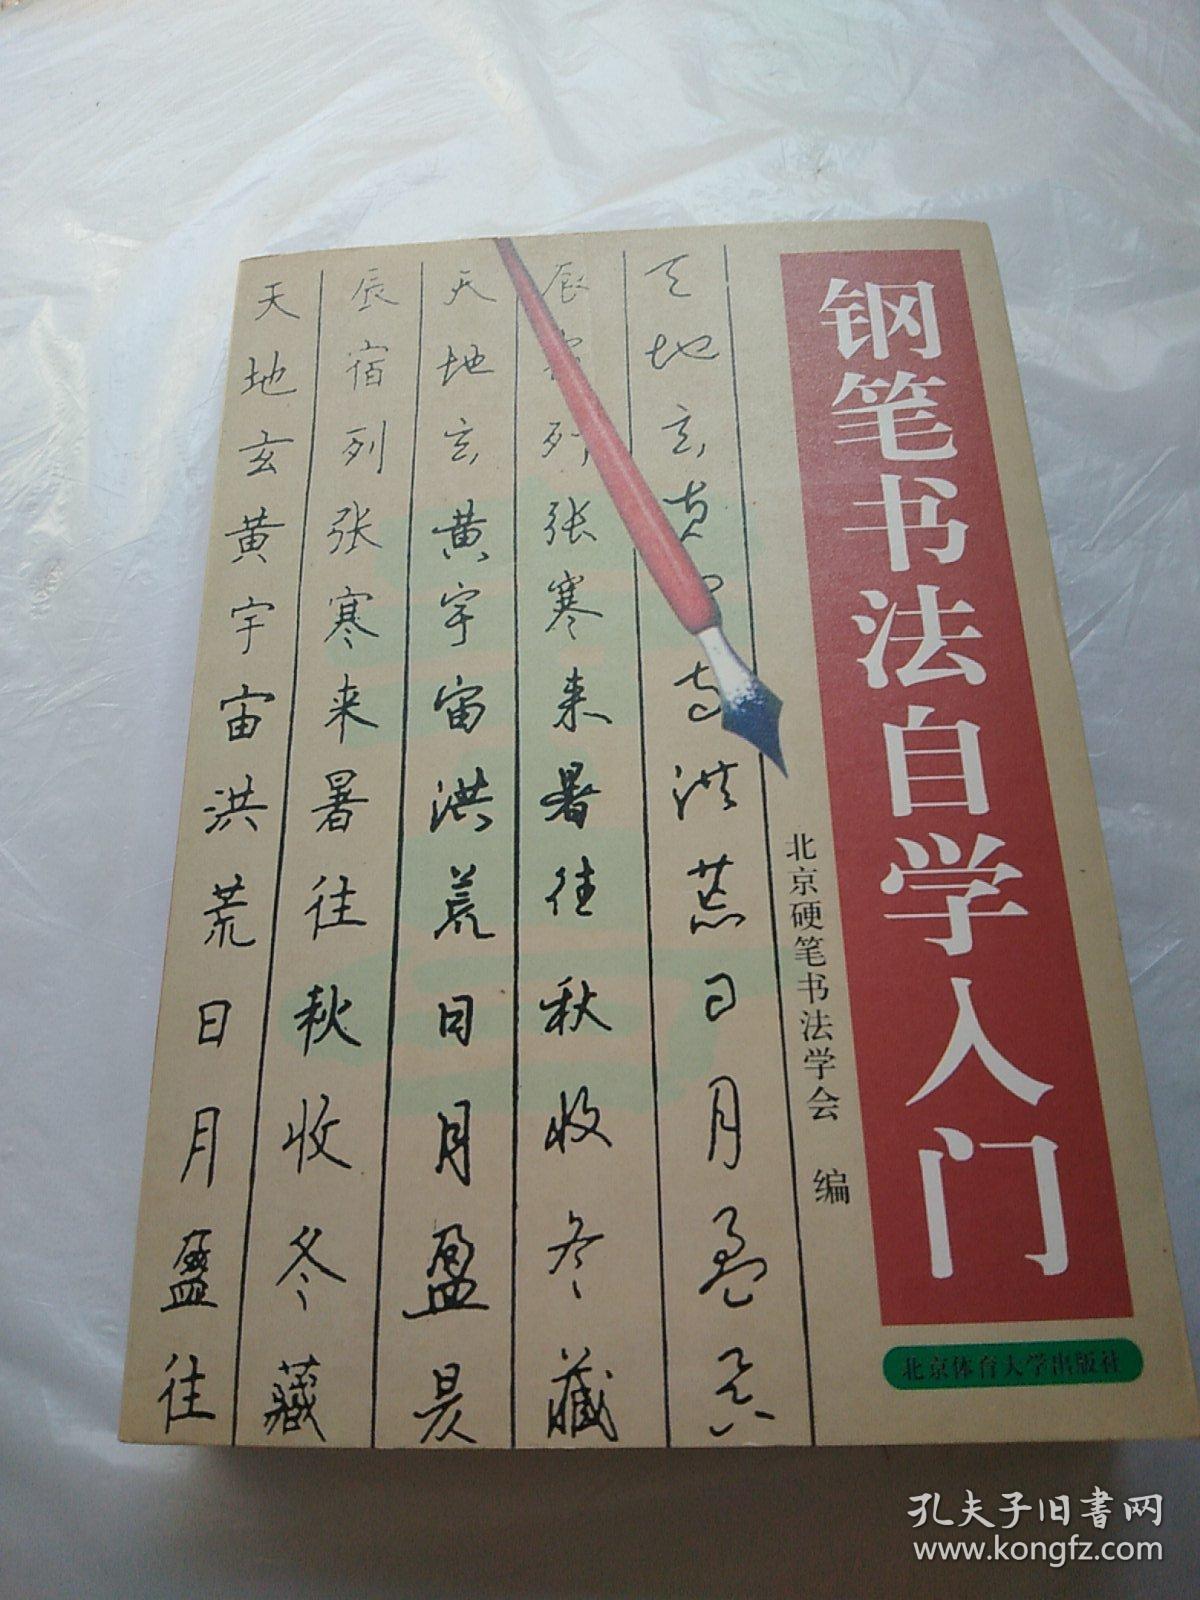 钢笔书法自学入门
北京硬笔书法学会 编
北京体育大学出版社
天地玄黄宇宙洪荒日月盈往
辰宿列张寒来暑往秋收冬藏
天地玄黄宇宙洪荒日月盈昃
辰宿列张寒来暑往秋收冬藏
天地玄黄宇宙洪荒日月盈昃
孔夫子旧书网
www.kongfz.com